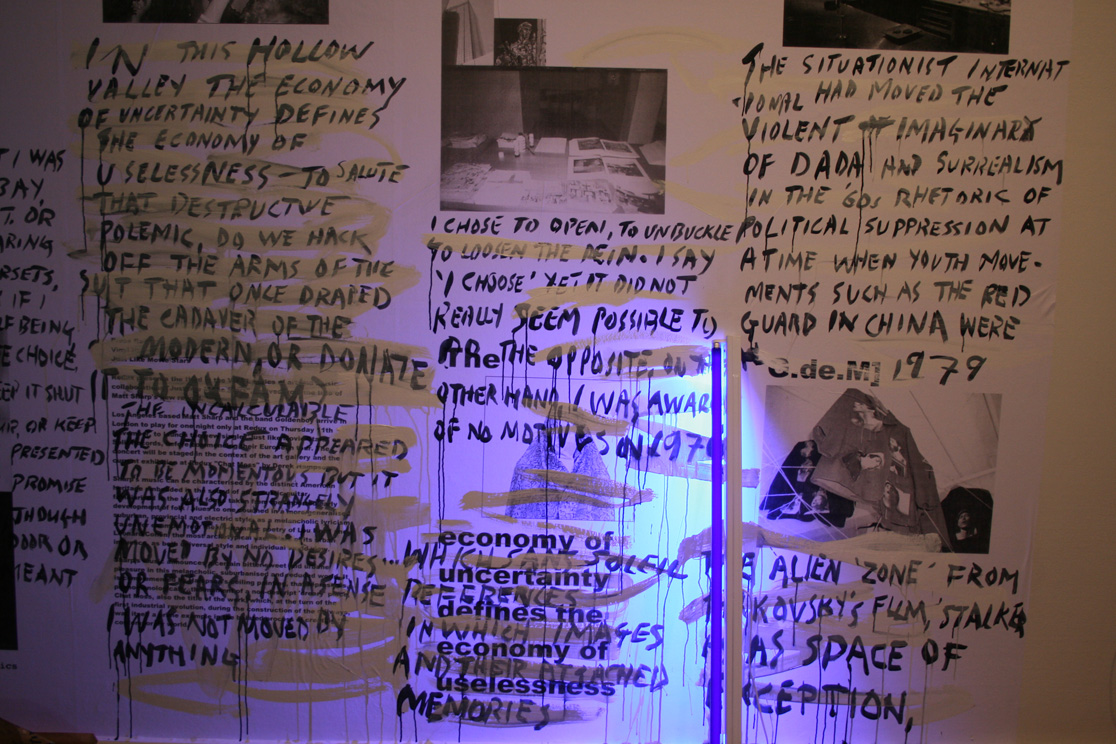 T I WAS
BAY,
T. OR
ARING
RSETS,
IF I
LF BEING
E CHOICE,
EEP IT SHUT
UP, OR KEEP
PRESENTED
PROMISE
THOUGH
DOOR OR
MEANT
ics
IN THIS HOLLOW
VALLEY THE ECONOMY
OF UNCERTAINTY DEFINES
THE ECONOMY OF
USELESSNESS – TO SALUTE
THAT DESTRUCTIVE
POLEMIC, DO WE HACK
OFF THE ARMS OF THE
SUIT THAT ONCE DRAPED
THE CADAVER OF THE
MODERN, OR DONATE
IT TO OXFAM?
THE INCALCULABLE
THE CHOICE APPEARED
TO BE MOMENTOUS BUT IT
WAS ALSO STRANGELY
UNEMOTIONAL. I WAS
MOVED BY NO DESIRES...
OR FEARS, IN A SENSE
I WAS NOT MOVED BY
ANYTHING
Los Angeles based Matt Sharp and the band Goldenboy arrive in
London to play for one night only at Redux on Thursday 11th
I CHOSE TO OPEN, TO UNBUCKLE
TO LOOSEN THE REIN. I SAY
'I CHOOSE' YET IT DID NOT
REALLY SEEM POSSIBLE TO
THE OPPOSITE, ON T
OTHER HAND I WAS AWAR
OF NO MOTIVES ON 197
economy of
uncertainty
defines the
economy of
uselessness
WHICH SOLELY
REFERENCES
IN WHICH IMAGES
AND THEIR ATTACHED
MEMORIES
THE SITUATIONIST INTERNAT
IONAL HAD MOVED THE
VIOLENT IMAGINARY
OF DADA AND SURREALISM
IN THE '60s RHETORIC OF
POLITICAL SUPPRESSION AT
A TIME WHEN YOUTH MOVE-
MENTS SUCH AS THE RED
GUARD IN CHINA WERE
C.de.M] 1979
THE ALIEN 'ZONE' FROM
KOVSKY'S FILM, 'STALKER
AS SPACE OF
CEPTION,